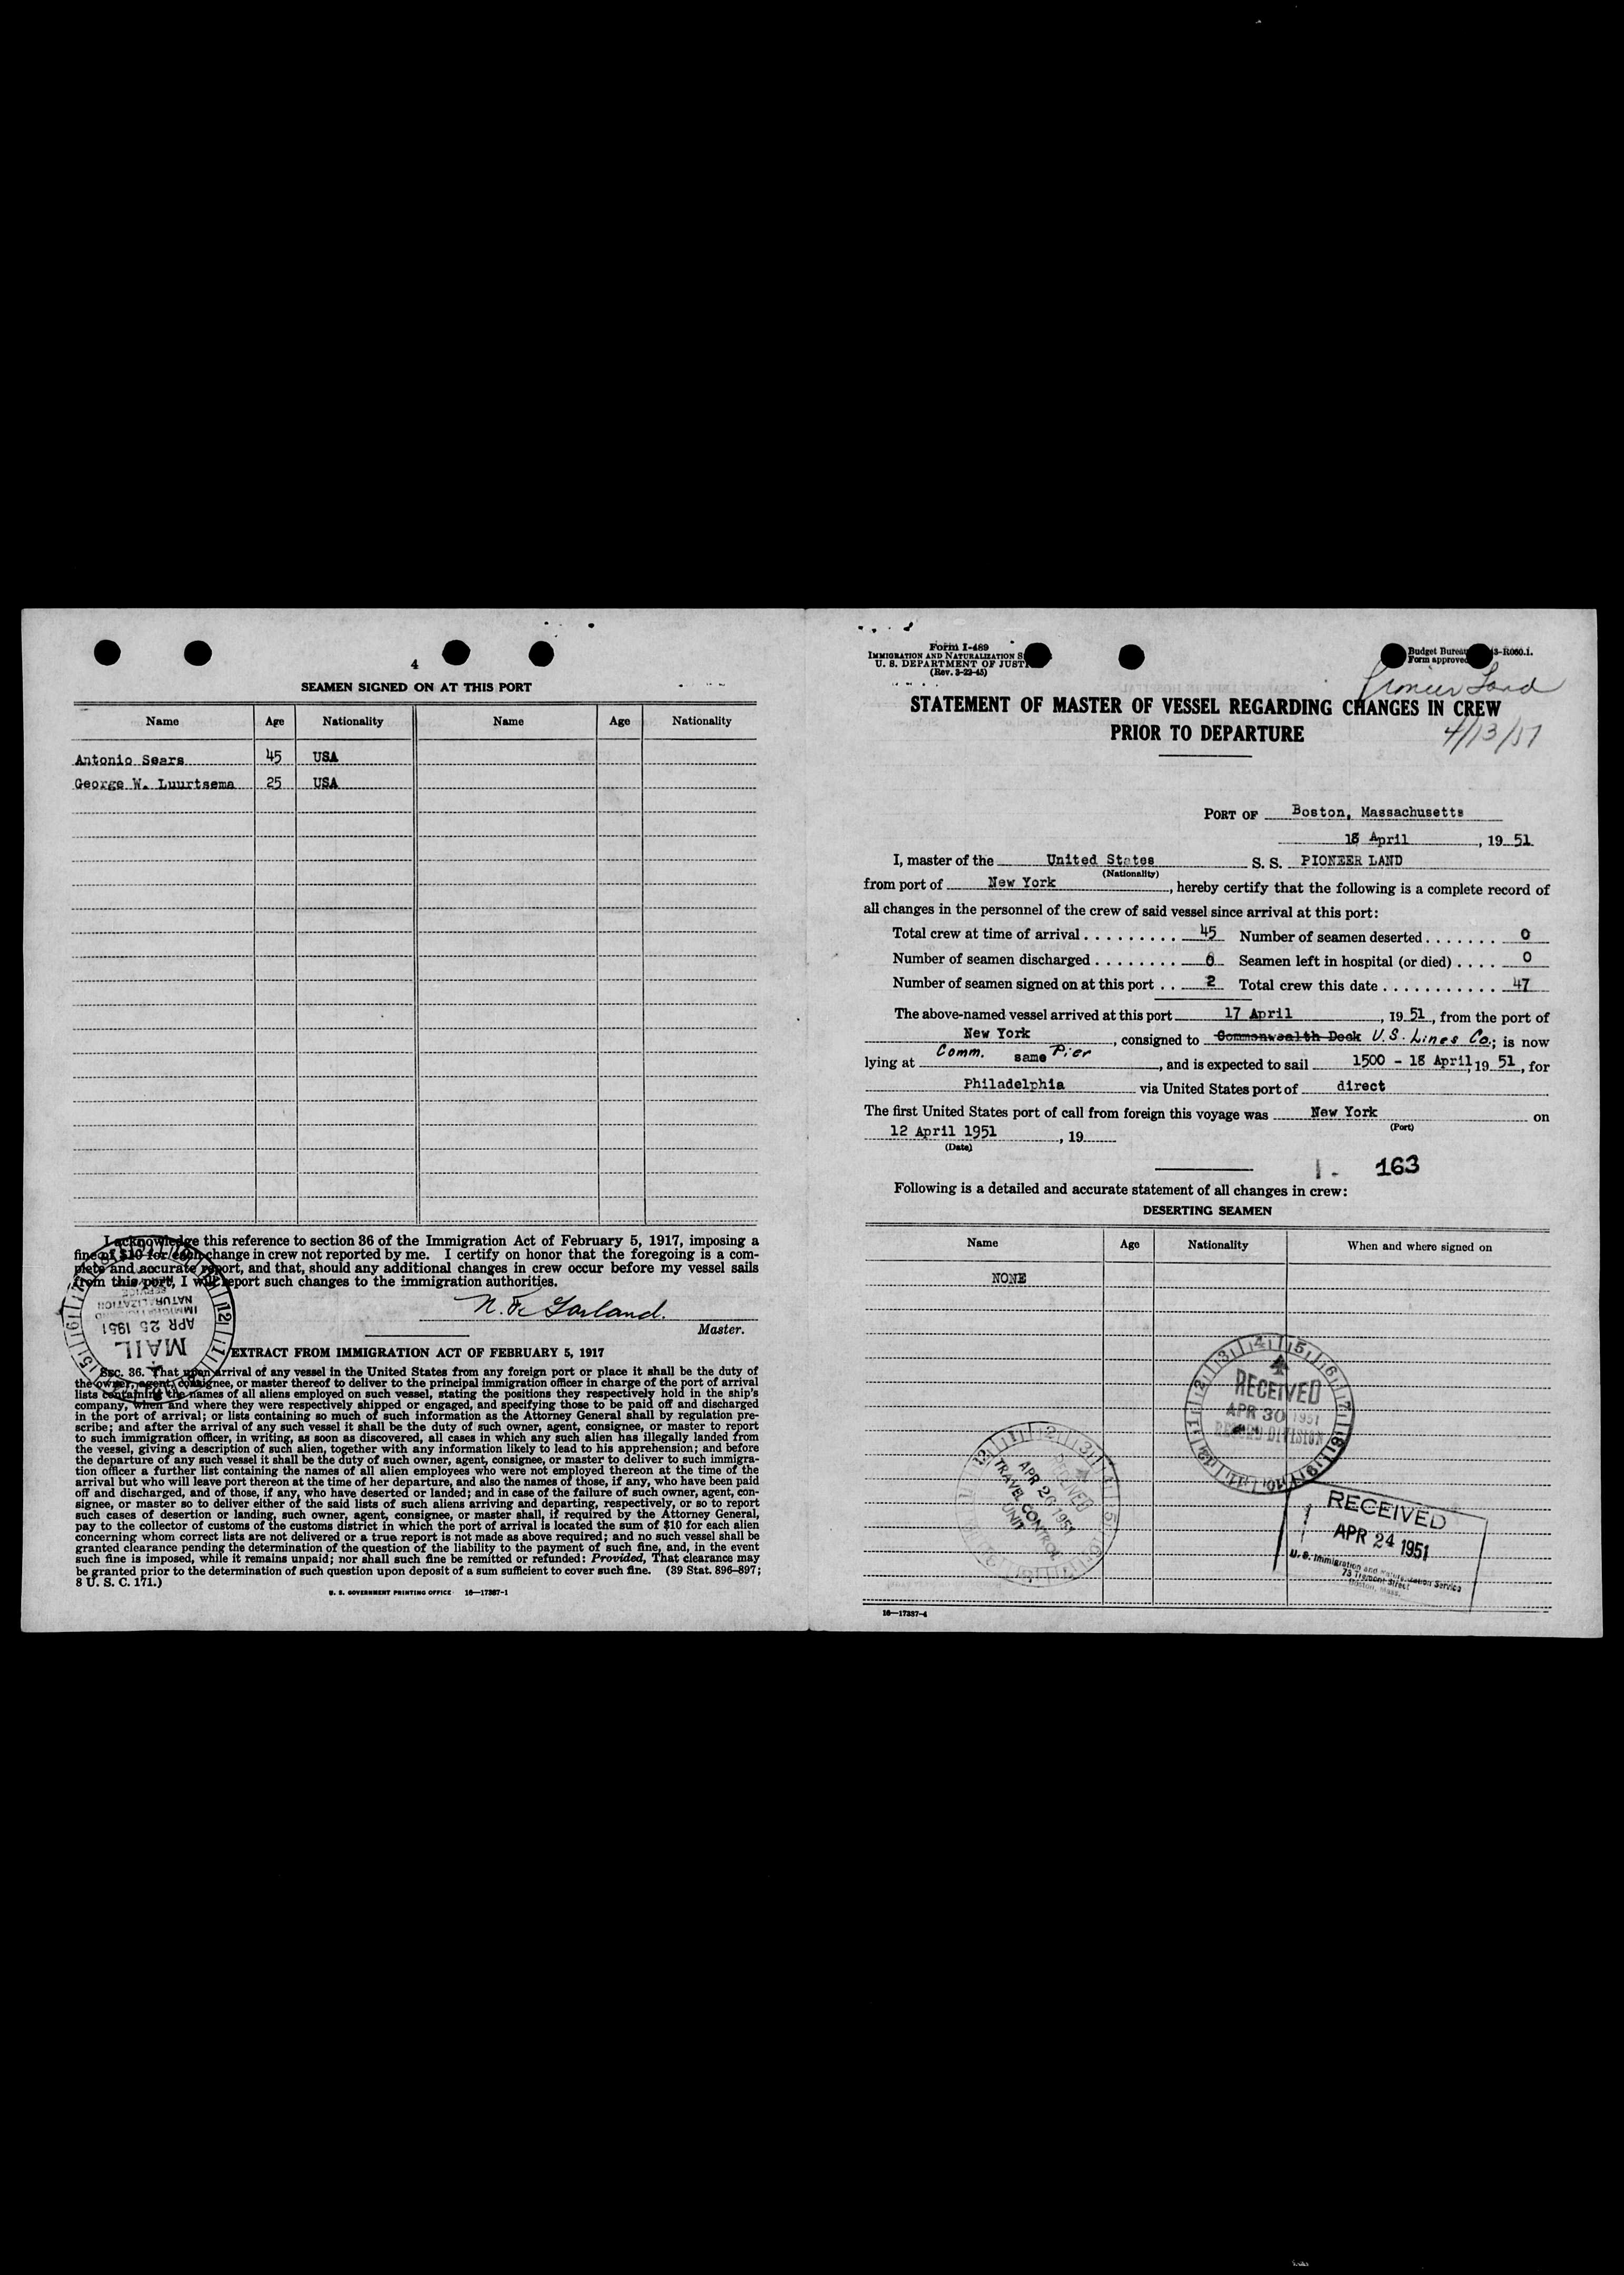 4
SEAMEN SIGNED ON AT THIS PORT
Name Age Nationality Name Age Nationality
Antonio Sears 45 USA
George W. Luurtsema 25 USA
I acknowledge this reference to section 36 of the Immigration Act of February 5, 1917, imposing a
fine of $10 for each change in crew not reported by me. I certify on honor that the foregoing is a com-
plete and accurate report, and that, should any additional changes in crew occur before my vessel sails
from this port, I will report such changes to the immigration authorities.
N. F. Garland.
Master.
IMMIGRATION
NATURALIZATION
SERVICE
APR 25 1951
MAIL
EXTRACT FROM IMMIGRATION ACT OF FEBRUARY 5, 1917
SEC. 36. That upon arrival of any vessel in the United States from any foreign port or place it shall be the duty of
the owner, agent, consignee, or master thereof to deliver to the principal immigration officer in charge of the port of arrival
lists containing the names of all aliens employed on such vessel, stating the positions they respectively hold in the ship's
company, when and where they were respectively shipped or engaged, and specifying those to be paid off and discharged
in the port of arrival; or lists containing so much of such information as the Attorney General shall by regulation pre-
scribe; and after the arrival of any such vessel it shall be the duty of such owner, agent, consignee, or master to report
to such immigration officer, in writing, as soon as discovered, all cases in which any such alien has illegally landed from
the vessel, giving a description of such alien, together with any information likely to lead to his apprehension; and before
the departure of any such vessel it shall be the duty of such owner, agent, consignee, or master to deliver to such immigra-
tion officer a further list containing the names of all alien employees who were not employed thereon at the time of the
arrival but who will leave port thereon at the time of her departure, and also the names of those, if any, who have been paid
off and discharged, and of those, if any, who have deserted or landed; and in case of the failure of such owner, agent, con-
signee, or master so to deliver either of the said lists of such aliens arriving and departing, respectively, or so to report
such cases of desertion or landing, such owner, agent, consignee, or master shall, if required by the Attorney General,
pay to the collector of customs of the customs district in which the port of arrival is located the sum of $10 for each alien
concerning whom correct lists are not delivered or a true report is not made as above required; and no such vessel shall be
granted clearance pending the determination of the question of the liability to the payment of such fine, and, in the event
such fine is imposed, while it remains unpaid; nor shall such fine be remitted or refunded: Provided, That clearance may
be granted prior to the determination of such question upon deposit of a sum sufficient to cover such fine. (39 Stat. 896-897;
8 U. S. C. 171.)
U. S. GOVERNMENT PRINTING OFFICE 16—17387-1
Form I-489
IMMIGRATION AND NATURALIZATION
U. S. DEPARTMENT OF
(Rev. 3-22-45)
Budget Bureau
Form approved
Pioneer Land
4/13/51
STATEMENT OF MASTER OF VESSEL REGARDING CHANGES IN CREW
PRIOR TO DEPARTURE
PORT OF Boston, Massachusetts
18 April, 19 51
I, master of the United States S. S. PIONEER LAND
(Nationality)
from port of New York, hereby certify that the following is a complete record of
all changes in the personnel of the crew of said vessel since arrival at this port:
Total crew at time of arrival . . . . . . . . . 45 Number of seamen deserted . . . . . . . 0
Number of seamen discharged . . . . . . . . 0 Seamen left in hospital (or died) . . . . 0
Number of seamen signed on at this port . . 2 Total crew this date . . . . . . . . . . . 47
The above-named vessel arrived at this port 17 April, 19 51, from the port of
New York, consigned to Commonwealth Dock U.S. Lines Co.; is now
lying at Comm. same Pier, and is expected to sail 1500 - 18 April, 19 51, for
Philadelphia via United States port of direct
The first United States port of call from foreign this voyage was New York on
(Port)
12 April 1951, 19
(Date)
1. 163
Following is a detailed and accurate statement of all changes in crew:
DESERTING SEAMEN
Name Age Nationality When and where signed on
NONE
RECEIVED
APR 30 1951
RECORD DIVISION
RECEIVED
APR 26 1951
TRAVEL CONTROL
UNIT
RECEIVED
APR 24 1951
U. S. Immigration and Naturalization Service
73 Tremont Street
Boston, Mass.
16—17387-4